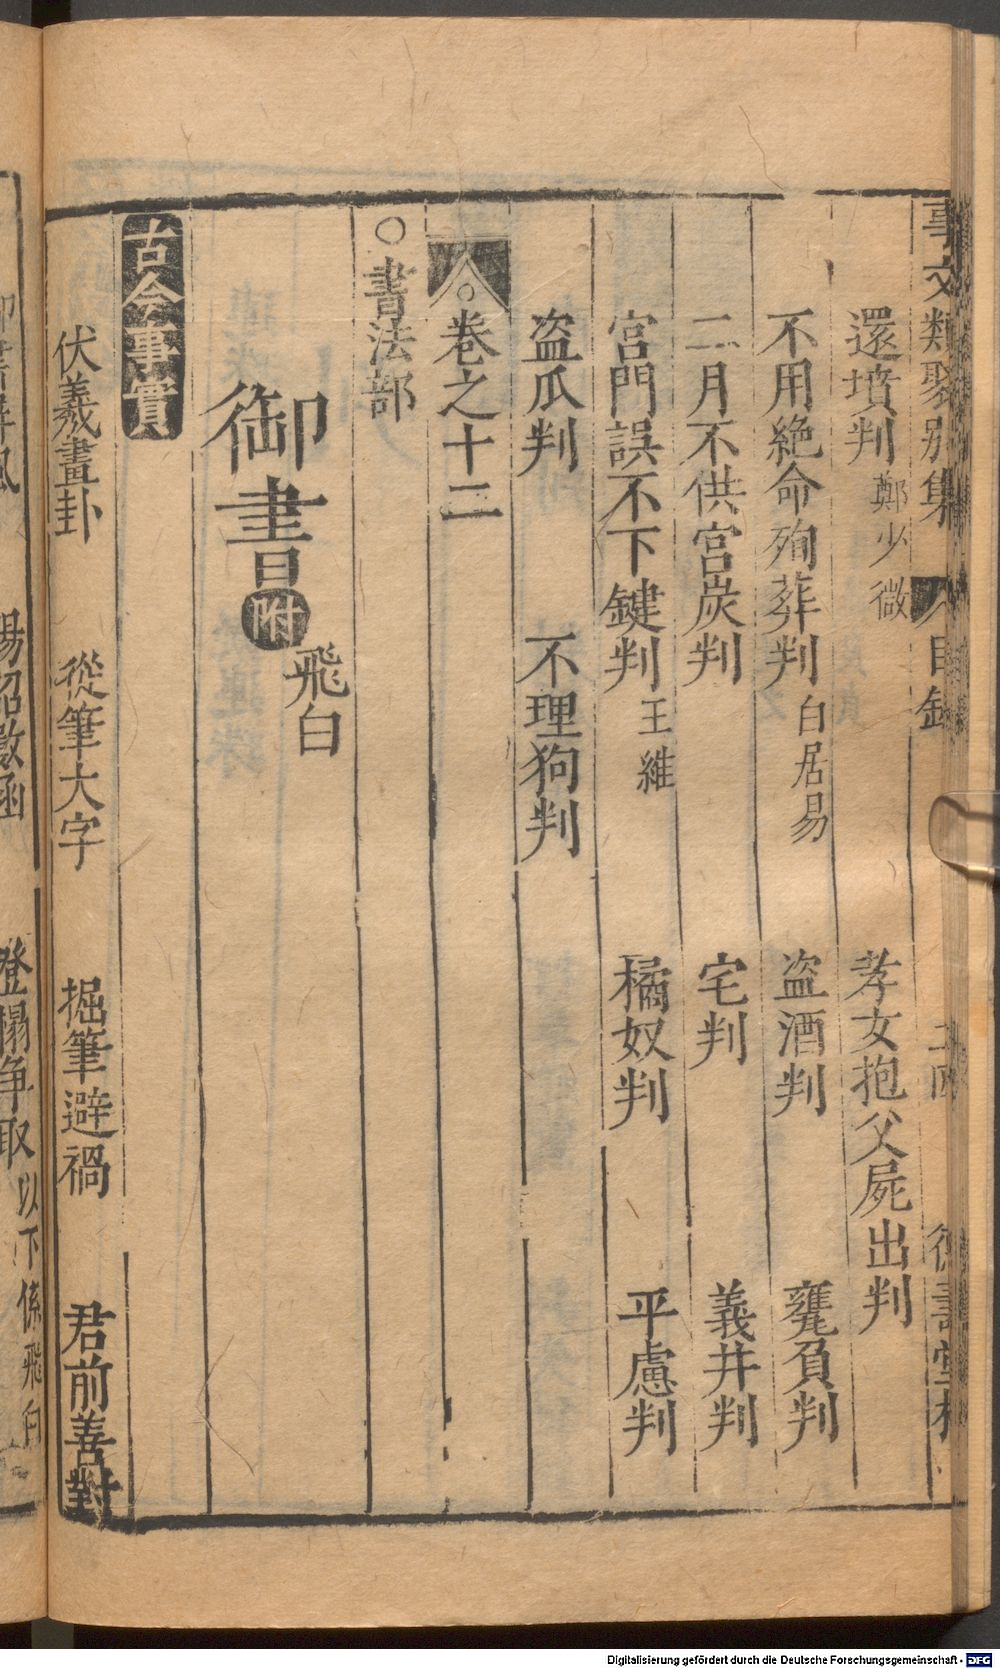 事文類聚別集 目錄 二 德壽堂
還墳判 鄭少微 孝女抱父屍出判
不用絶命殉葬判 白居易 盗酒判 甕負判
二月不供宫炭判 宅判 義井判
宫門誤不下鍵判 王維 橘奴判 平慮判
盗瓜判 不理狗判
○卷之十二
○書法部
御書 附 飛白
古今事實
伏羲畫卦 從筆大字 掘筆避禍 君前善對
登榻争取 以下係飛白
Digitalisierung gefördert durch die Deutsche Forschungsgemeinschaft - DFG